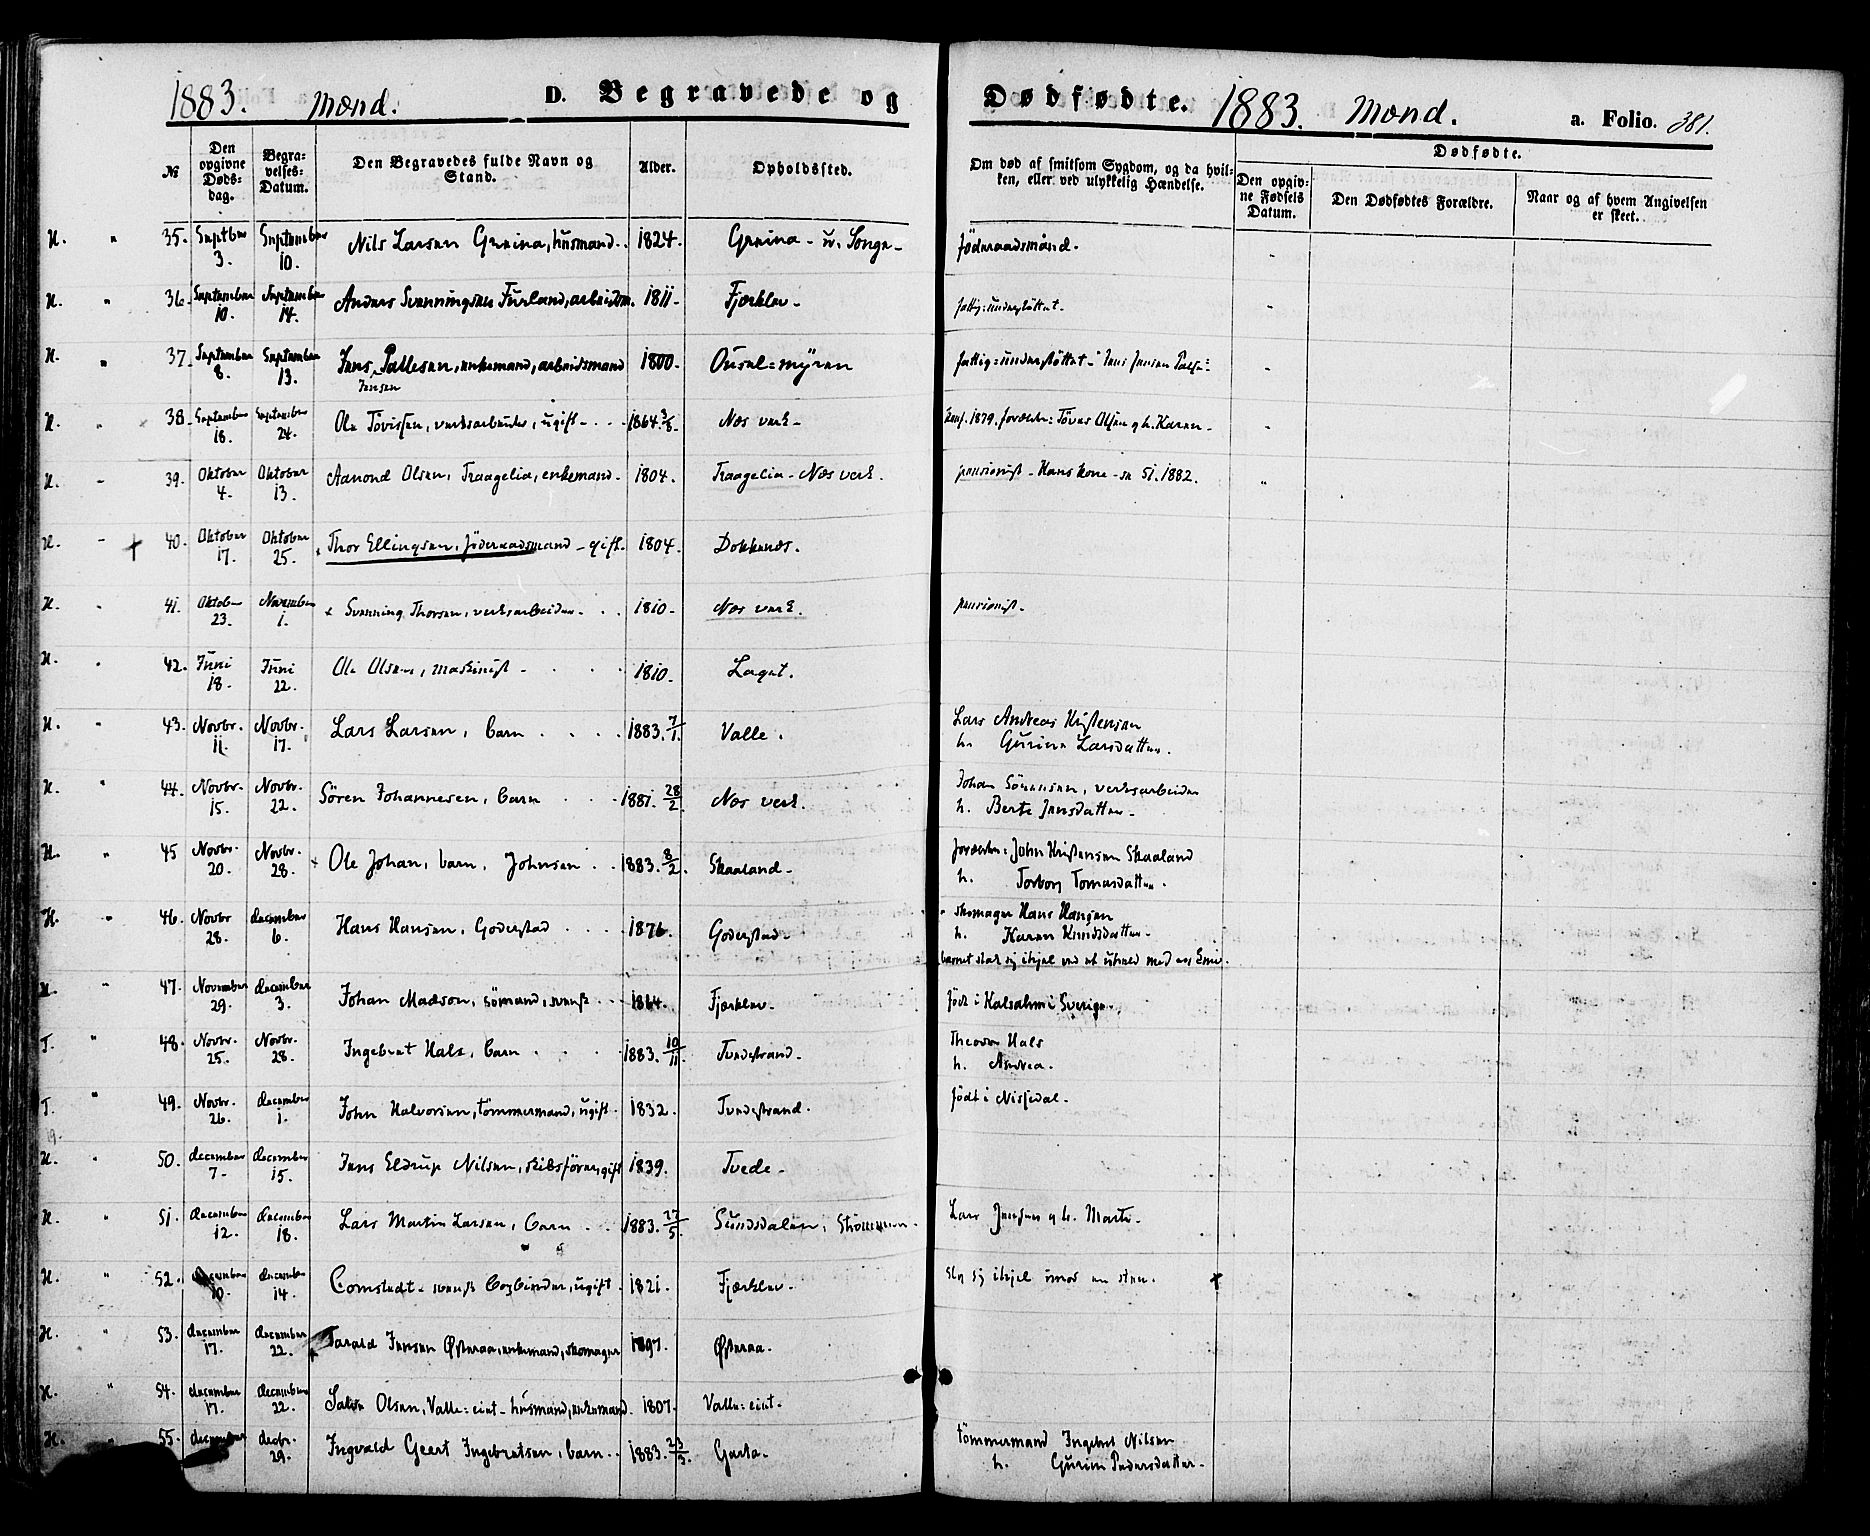 1883. Mænd. D. Begravede og Dødfødte. 1883. Mænd. a. Folio. 381.
№ Den opgivne Døds-dag. Begra-velses-Datum. Den Begravedes fulde Navn og Stand. Alder. Opholdssted. Om død af smitsom Sygdom, og da hvil-ken, eller ved ulykkelig Hændelse. Dødfødte. Den opgiv-ne Fødsels Datum. Den Dødfødtes Forældre. Naar og af hvem Angivelsen er skeet.
H. " 35. Septbr 3. September 10. Nils Larsen Greina, husmand. 1824. Greina - v. Songe - Föderaadsmand.
H. " 36. September 10. September 14. Anders Svenningsen Furland, arbeidsm. 1811. Fjærklev - fattig-understöttet.
H. " 37. September 8. September 13. Jens Pallesen, enkemand, arbeidsmand 1800. Ousel=myren fattig=understöttet - Jens Jensen
Jensen
H. " 38. September 18. September 24. Ole Tövissen, verksarbeider, ugift - 1864. 3/8. Næs verk - konf. 1879. forældre: Töves Olsen og h. Karen -
H. - 39. Oktober 4. Oktober 13. Aamond Olsen, Traagelia, enkemand - 1804. Traagelia - Næs verk. pensionist - Hans kone - 1882.
H. - 40. Oktober 17. Oktober 25. Thor Ellingsen, föderaadsmand - gift. 1804. Dokkenæs.
H. " 41. Oktober 23. November 1. Svenning Thorsen, verksarbeider - 1810 - Næs verk. pensionist -
H. " 42. Juni 18. Juni 22. Ole Olsen, maskinist - 1810. Laget.
H. " 43. Novbr. 11. Novbr. 17. Lars Larsen, barn 1883. 7/1. Valle. Lars Andreas Kristensen
h. Gurine Larsdatter.
H. " 44. Novbr. 15. Novbr. 22. Sören Johannesen, barn 1881. 28/2. Næs verk. Johan Sörensen, verksarbeider
h. Berte Jensdatter -
H. " 45 Novbr. 20. Novbr. 28. Ole Johan, barn, Johnsen 1883. 8/2. Skaaland - forældre: John Kristensen Skaaland
h. Torborg Tomasdatter.
H. " 46. Novbr 28. december 6. Hans Hansen, Goderstad 1876. Goderstad - skomager Hans Hansen
h. Karen Knudsdatter -
barnet stak sig ihjel ved et uheld med en kniv.
H. " 47. November 29. december 3. Johan Madson, sömand, svensk 1864. Fjærklev. född i Kalsahm i Sverige.
T. " 48. Novbr. 25. Novbr. 28. Ingebret Hals, barn 1883. 10/11. Tvedestrand. Theodor Hals
h. Andrea.
T. " 49. Novbr. 26. december 1. John Halvorsen, tömmermand, ugift. 1832. Tvedestrand. födt i Nissedal.
H. " 50. december 7. december 15. Jens Eldrup Nilsen, skibsförer, gift 1839. Tvede -
H. " 51. december 12. december 18. Lars Martin Larsen, barn 1883. 27/5. Sundsdalen, Lars Jensen og h. Marte.
H. " 52. december 10. december 14. Comstedt - svensk bogbinder, ugift. 1821. Fjærklev - slog sig ihjel imod en sten.
H. " 53. december 17. december 22. Tarald Jensen Østeraa, enkemand, skomager 1807. Østeraa.
H. " 54. december 17. december 22. Salve Olsen, Valle=eiet - husmand, enkemand. 1807. Valle=eiet.
H. " 55. december decbr. 29. Ingvald Geert Ingebretsen, barn 1883. 23/5. Garta. tömmermand Ingebret Nilsen
h. Gurine Pedersdatter.